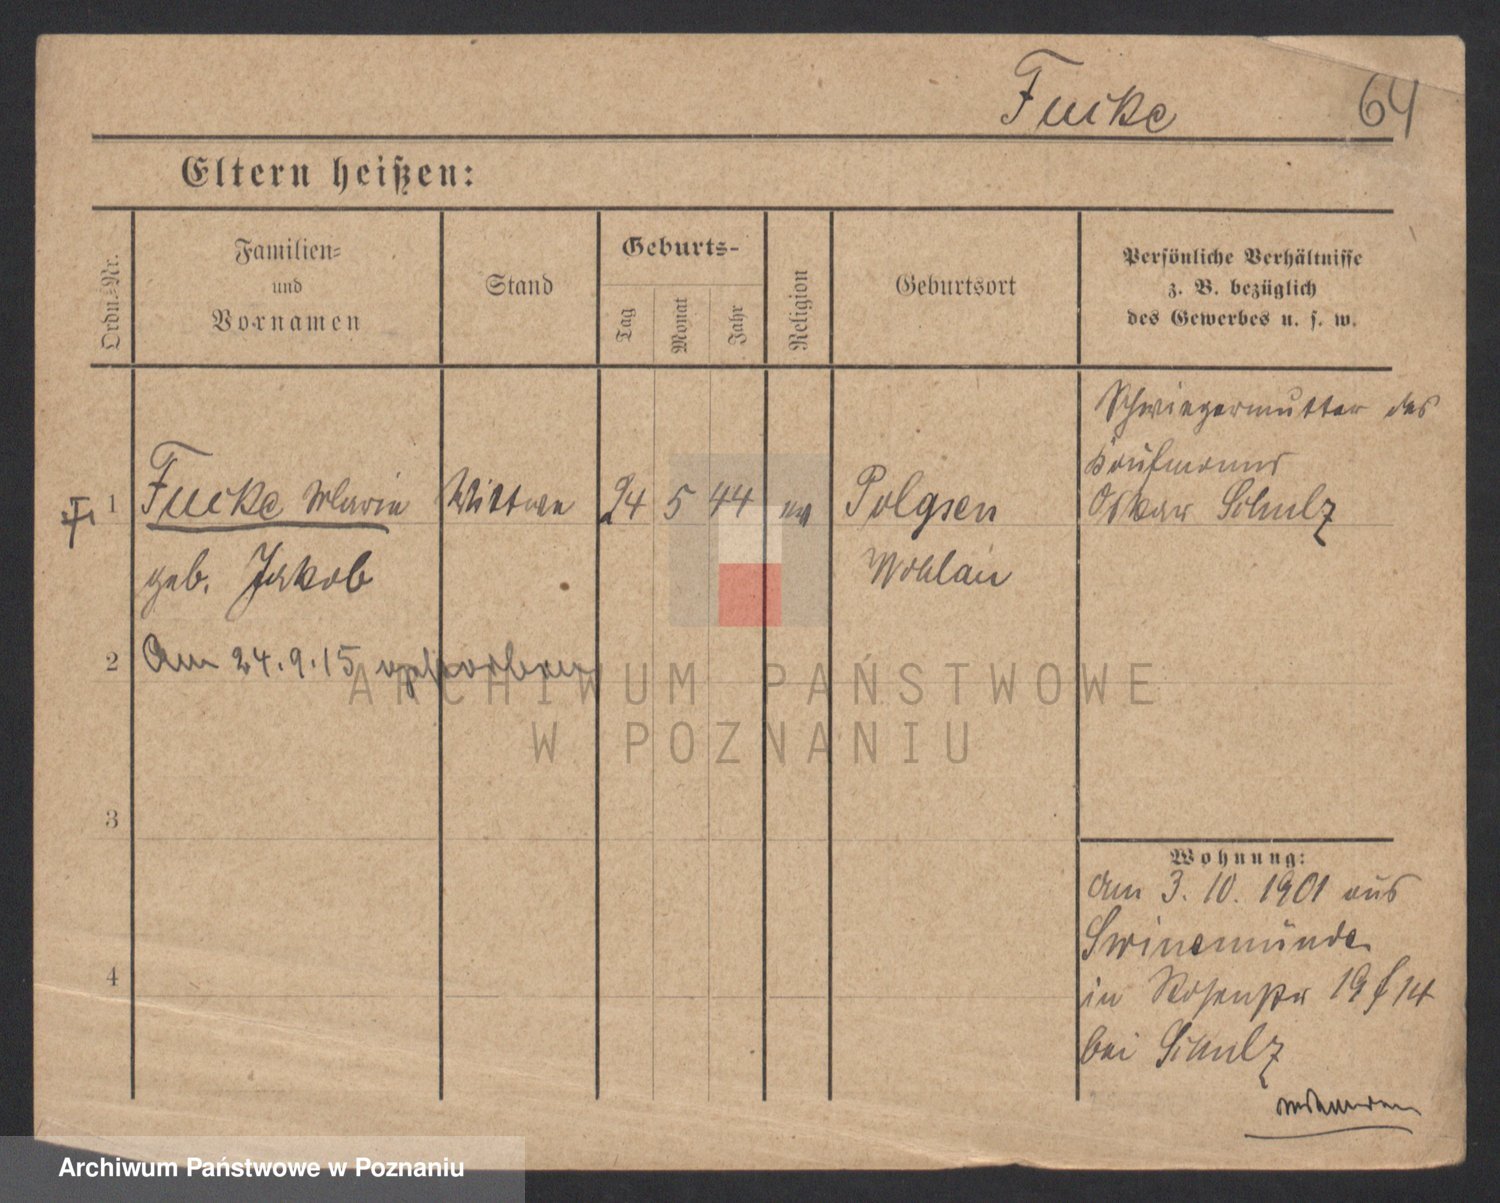 Fucke 64
Eltern heißen:
Ordn.-Nr.
Familien-
und
Vornamen
Stand
Geburts-
Tag
Monat
Jahr
Religion
Geburtsort
Persönliche Verhältnisse
z. B. bezüglich
des Gewerbes u. s. w.
1 Fucke Marie Wittwe 24 5 44 ev Polgsen
geb. Jakob Wohlau
Schwiegermutter des
Kaufmanns
Oskar Schulz
2 Am 24.9.15 gestorben
3
4
Wohnung:
Am 3. 10. 1901 aus
Swinemünde
in Rosenstr 19 f 14
bei Schulz
ARCHIWUM PAŃSTWOWE
W POZNANIU
Archiwum Państwowe w Poznaniu